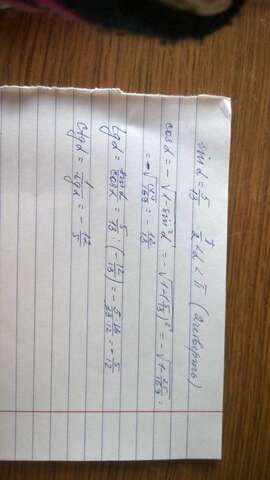 sin α = 5/13   π/2 < α < π (2 четверть)
cos α = -√(1-sin²α) = -√(1-(5/13)²) = -√(1-25/169) =
= -√(144/169) = -12/13
tg α = sin α/cos α = 5/13 : (-12/13) = -5·13/13·12 = -5/12
ctg α = 1/tg α = -12/5